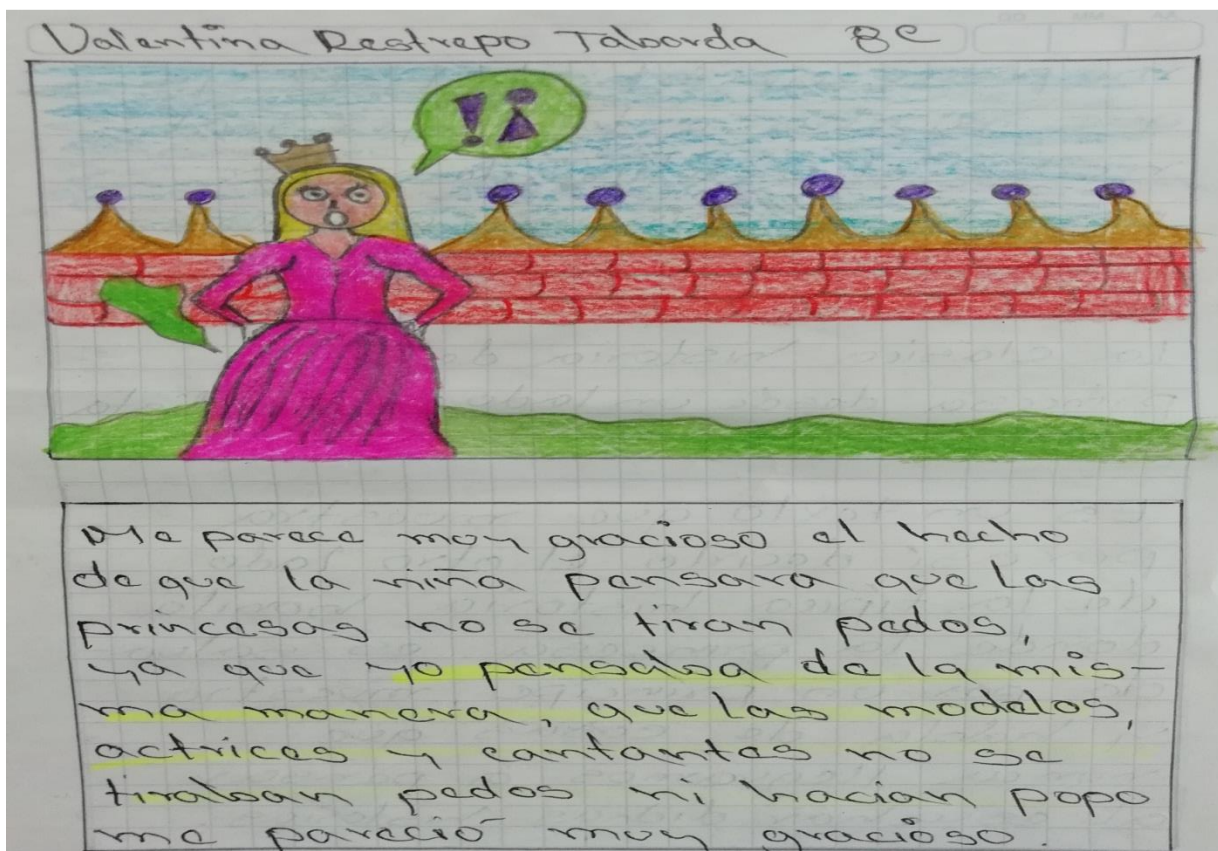 Valentina Restrepo Taborda 8C
Me parece muy gracioso el hecho
de que la niña pensara que las
princesas no se tiran pedos,
ya que yo pensaba de la mis-
ma manera, que las modelos,
actrices y cantantes no se
tiraban pedos ni hacian popo
me pareció muy gracioso.